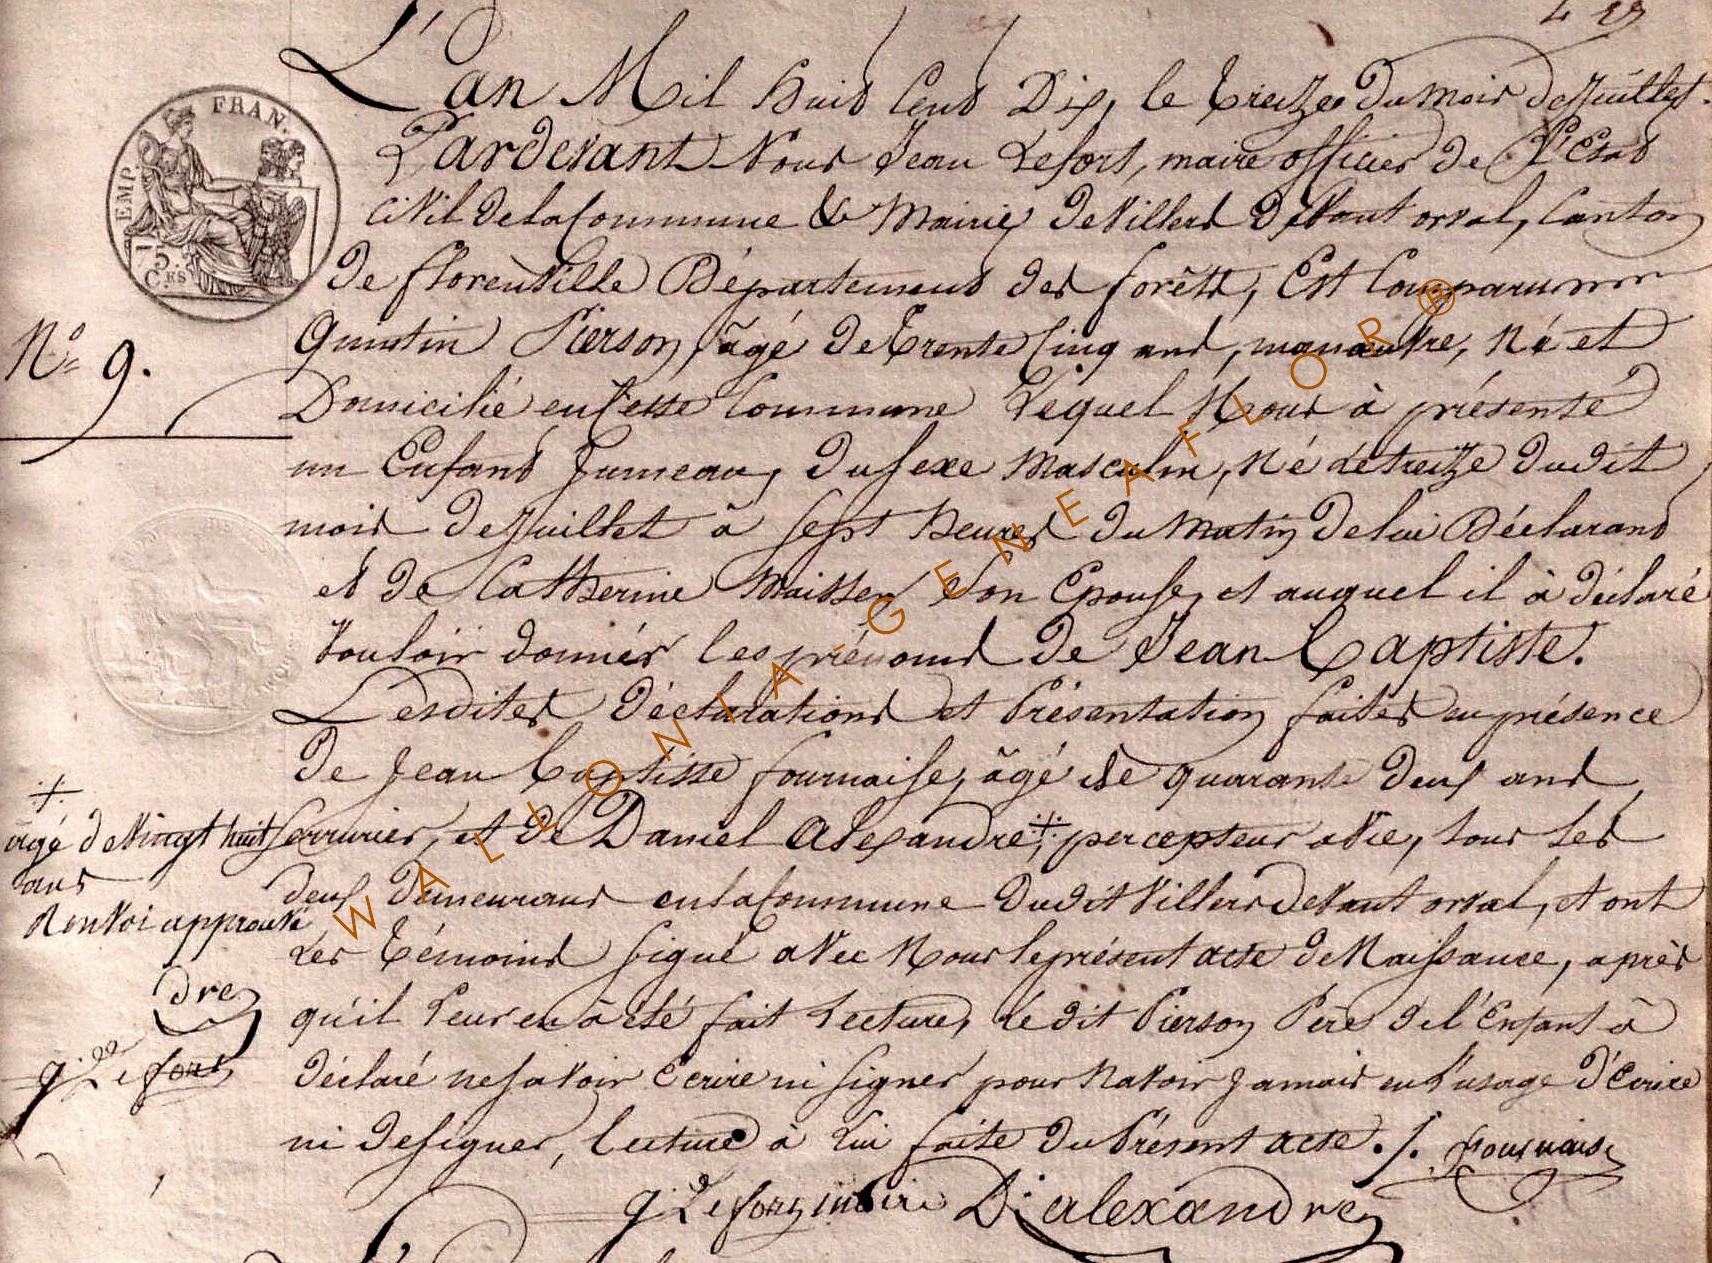 L'an Mil huit Cent Dix, le treize du mois de Juillet.
Pardevant Nous Jean Lefort, maire officier de l'Etat
civil de la Commune & Mairie de Villers devant orval, Canton
de florenville Département des forêts, Est Comparu
Quintin Pierson, âgé de trente Cinq ans, manœuvre, Né et
Domicilié en Cette Commune Lequel Nous à présenté
un Enfant Jumeau, du sexe Masculin, Né le treize dudit
mois de Juillet à sept heures du Matin de lui Déclarant
et de Catherine Maisser Son Epouse, et auquel il à déclaré
vouloir donner les prénoms de Jean Baptiste.
Lesdites déclarations et Présentation faites en présence
de Jean Baptiste fournaise, âgé de quarante deux ans,
serrurier, et de Daniel Alexandre ÷ percepteur à Vie, tous les
deux demeurans en la Commune dudit Villers devant orval, et ont
les témoins signé avec Nous le présent acte de Naissance, après
qu'il leur en à été fait Lecture, le dit Pierson Père de l'Enfant à
déclaré ne savoir Ecrire ni signer pour N'avoir Jamais eu l'usage d'Ecrire
ni de signer, lecture à Lui faite du Présent acte. /. fournaise
J: Lefort maire D: alexandre
N° 9.
÷
agé de Vingt huit
ans
Renvoi approuvé
dre
J: Lefort
EMP. FRAN.
75.
C.ES
WALLONIA-GENEAFLOR®